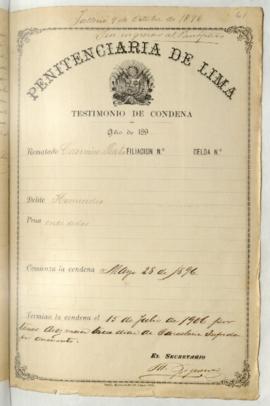 Falleció 9 de Octubre de 1896
61
Sin ingresar al Panóptico
PENITENCIARIA DE LIMA
TESTIMONIO DE CONDENA
Año de 189
Rematado Casimiro FILIACION Nº CELDA Nº
Delito Homicidio
Pena
Comienza la condena Mayo 25 de 1896
Termina la condena el 15 de Julio de 1906 por
tener diez meses dias de Carceleria sufrida
EL SECRETARIO